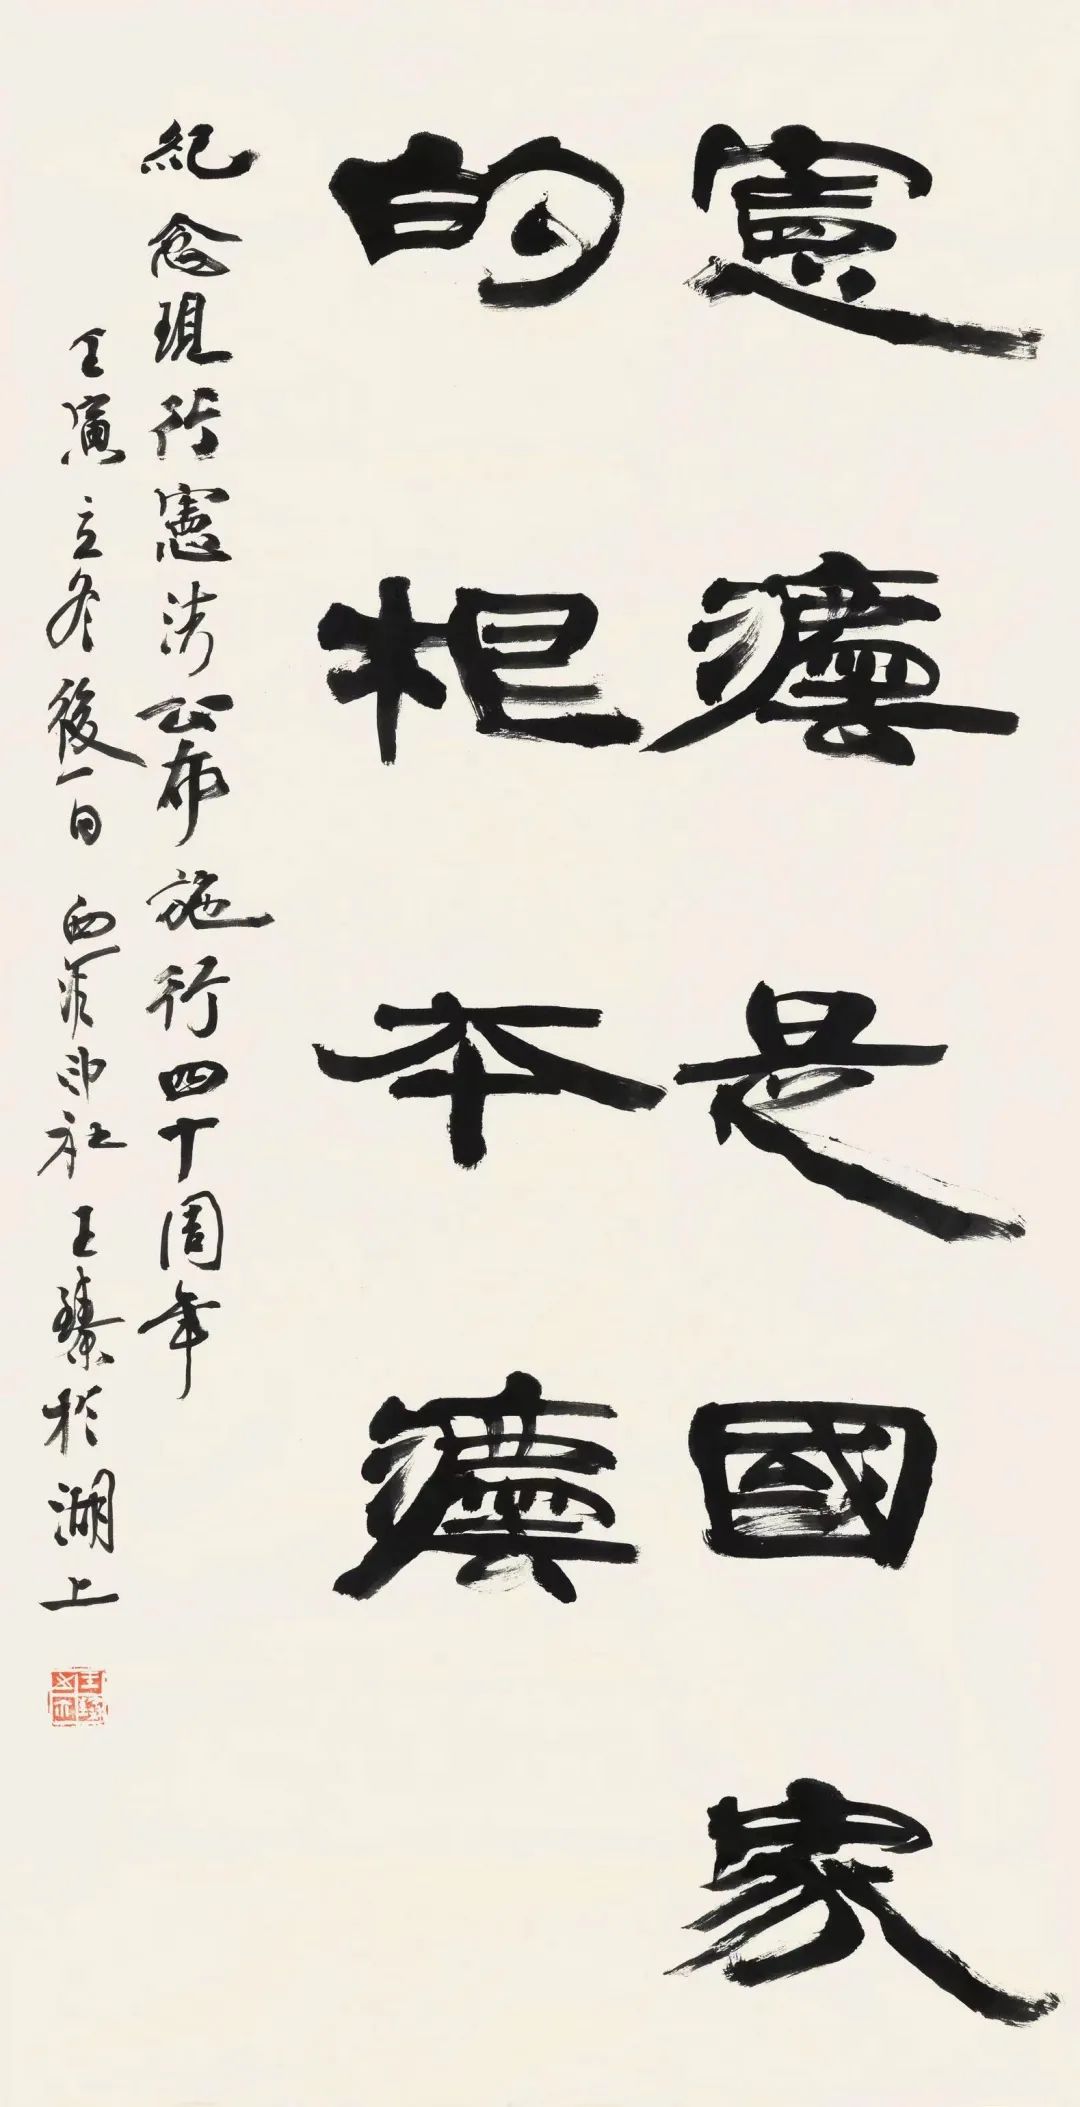 憲灋是國家
的根本灋
紀念現行憲法公布施行四十周年
壬寅立冬後一日 西泠印社王臻於湖上